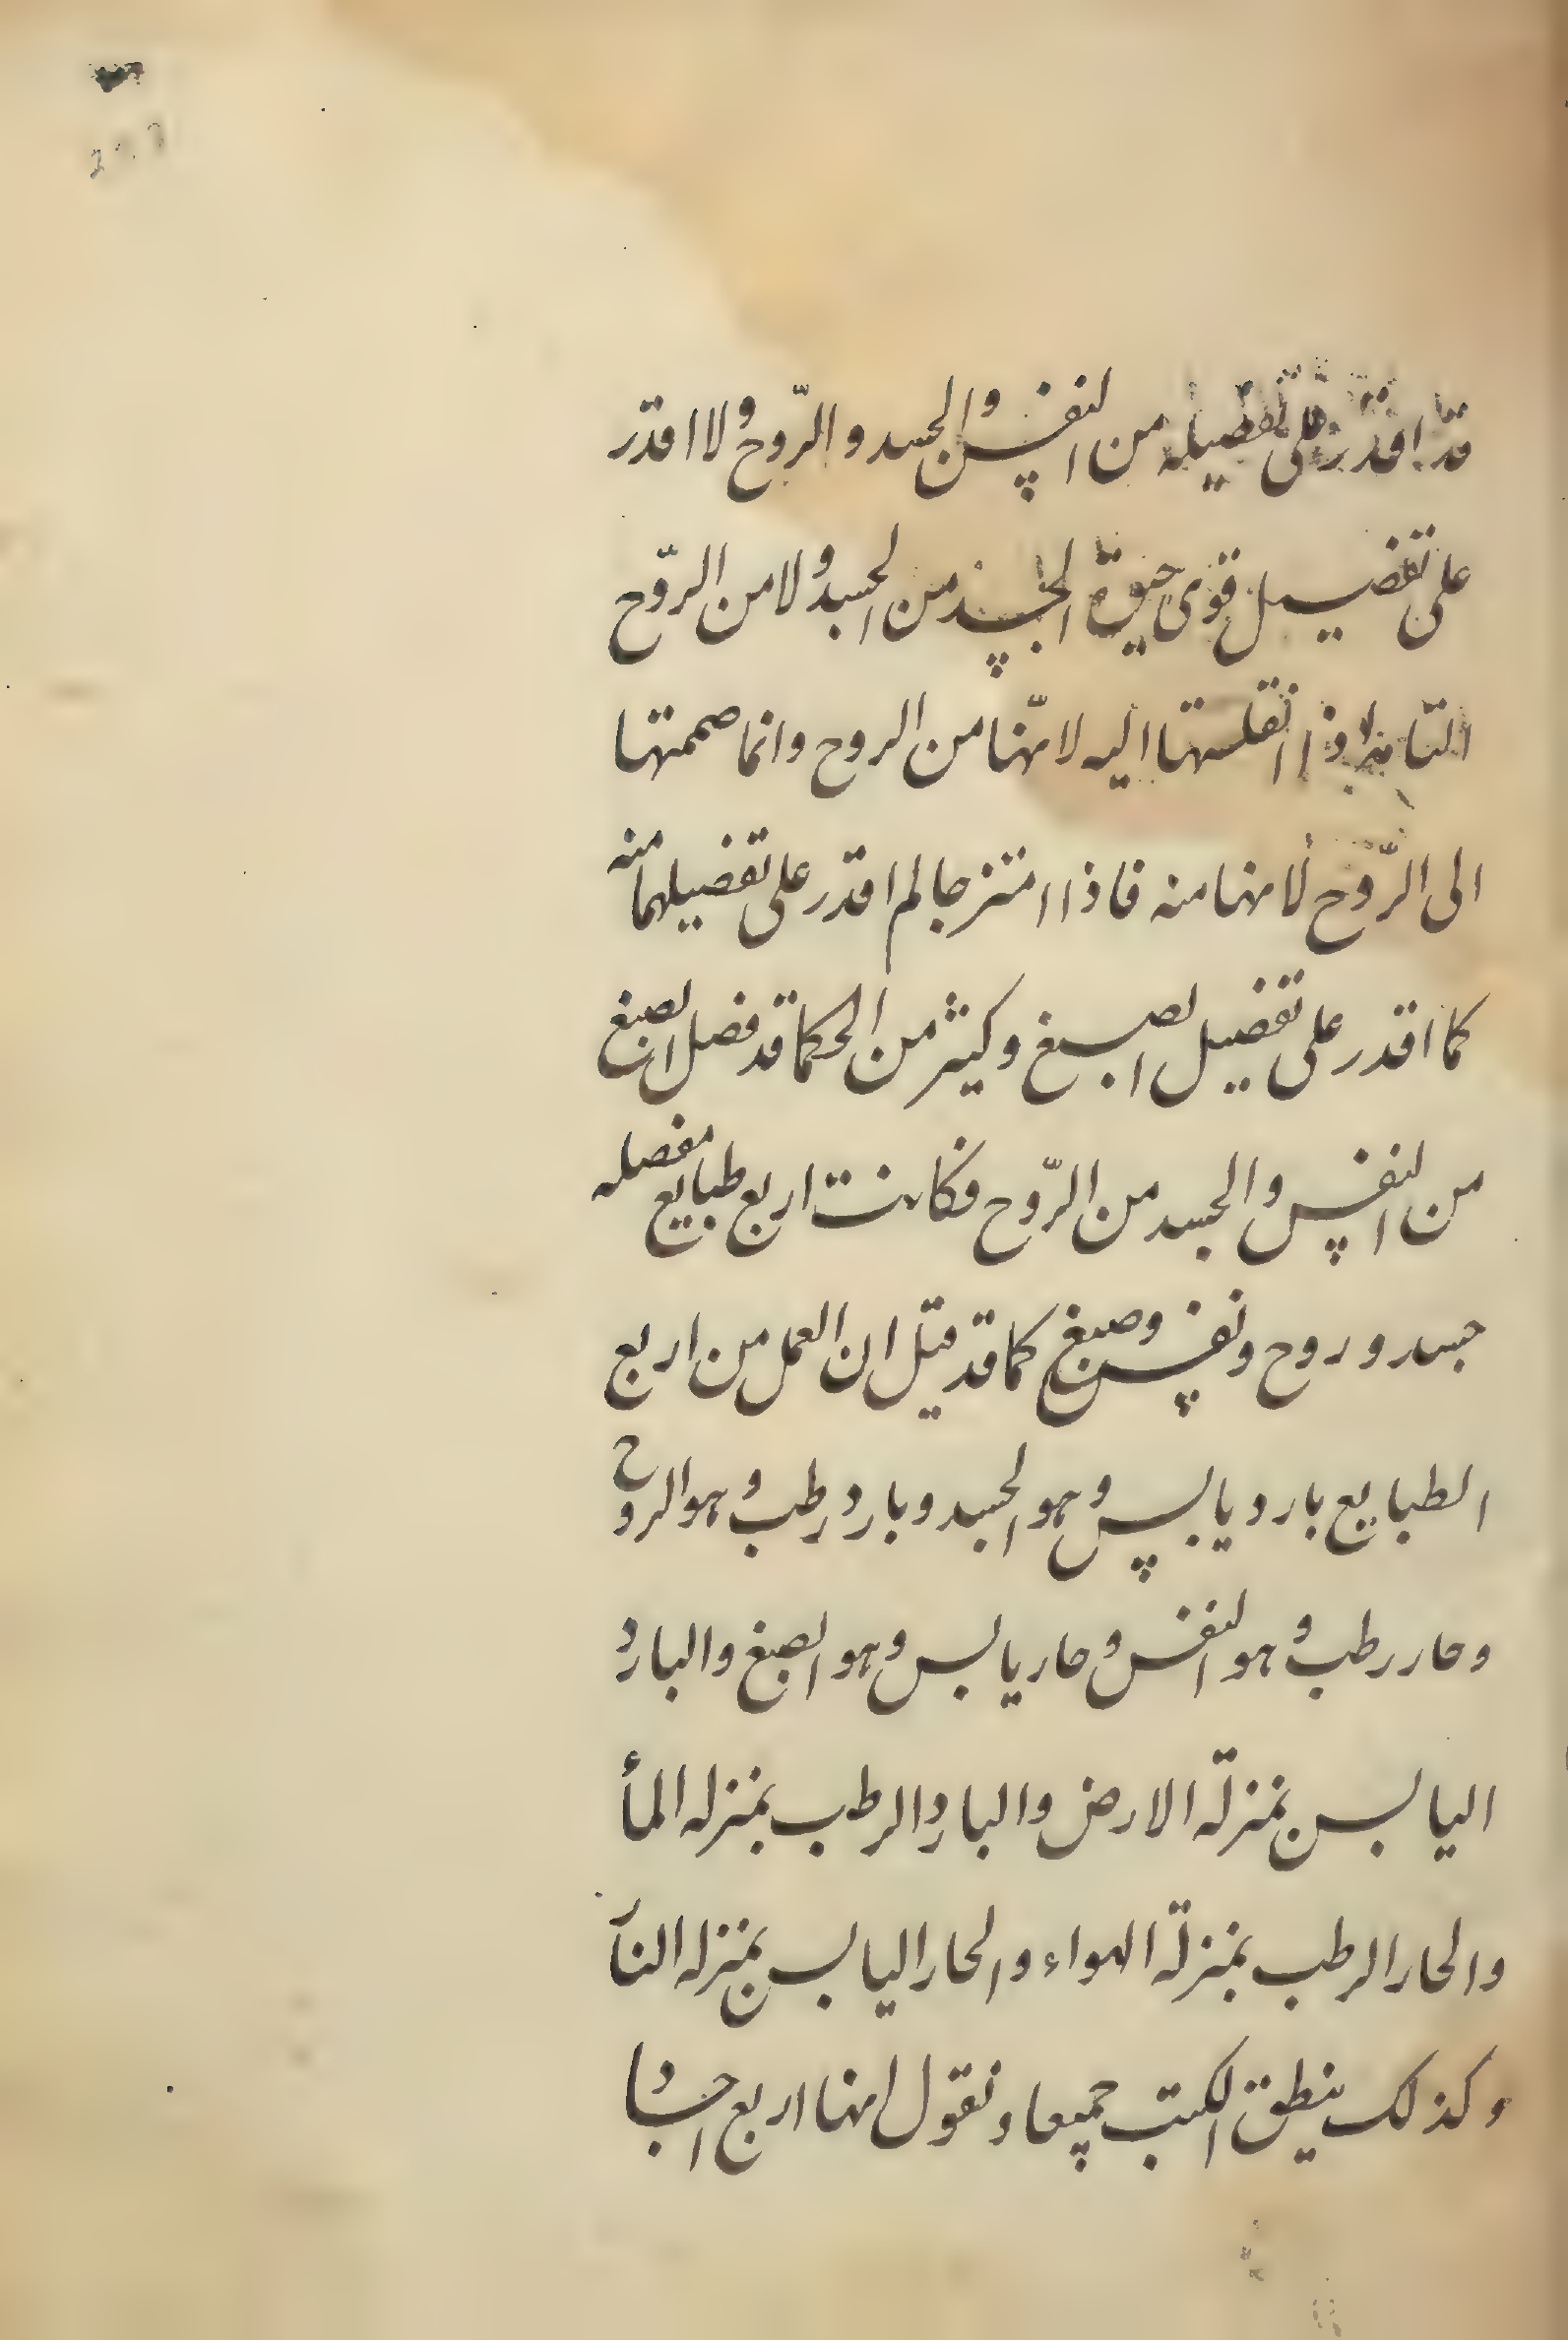 قد اقدر على تفصيله من النفس والجسد والرّوح ولا اقدر
على تفضيل قوى حيوة الجسد من الجسد ولا من الرّوح
اذا انقلستها اليه لانّها من الروح وانما صممتها
الى الرّوح لانها منه فاذا امتزجا لم اقدر على تفضيلهما منه
كما اقدر على تفضيل الصبغ وكيثر من الحكما قد فضل الصبغ
من النفس والجسد من الرّوح فكانت اربع طبايع مفصله
جسد وروح ونفس وصبغ كما قد قيل ان العمل من اربع
الطبايع بارد ويابس وهو الجسد وبارد رطب وهو الروح
وحار رطب وهو النفس وحار يابس وهو الصبغ والبارد
اليابس بمنزلة الارض والبارد الرطب بمنزله المأ
والحار الرطب بمنزلة الهواء والحار اليابس بمنزله النار
وكذلك ينطق الكتب جميعا ونقول انها اربع اجساد